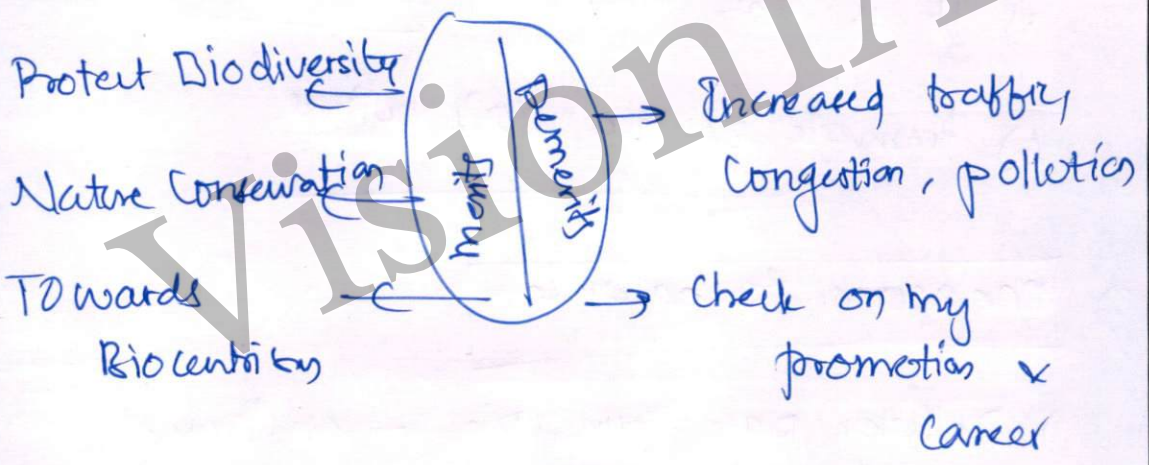 Protect Biodiversity
Nature Conservation
Towards
Biocentrism
Demerits
Increased traffic,
Congestion, pollution
Check on my
promotion &
Career
Vision